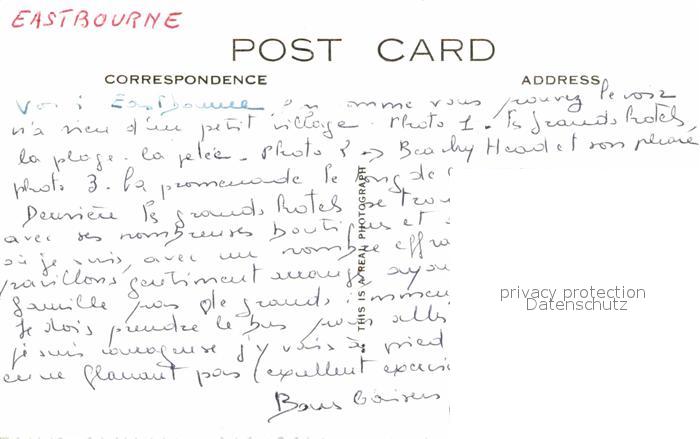 EASTBOURNE
POST CARD
CORRESPONDENCE
ADDRESS
Voici Eastbourne comme vous pouvez le voir
n'a rien d'un petit village. Photo 1. les grands hotels,
la plage. la jetée. Photo 2 → Beachy Head et son phare
photo 3. la promenade le long de
Derrière les grands hotels se trou
avec ses nombreuses boutiques et
où je suis, avec un nombre effra
pavillons gentiment
famille pas de grands immeu
Je dois prendre le bus pour alle
je suis courageuse j'y vais à pied
en ne flanant pas (excellent exerci
Bons baisers
THIS IS A REAL PHOTOGRAPH
privacy protection
Datenschutz